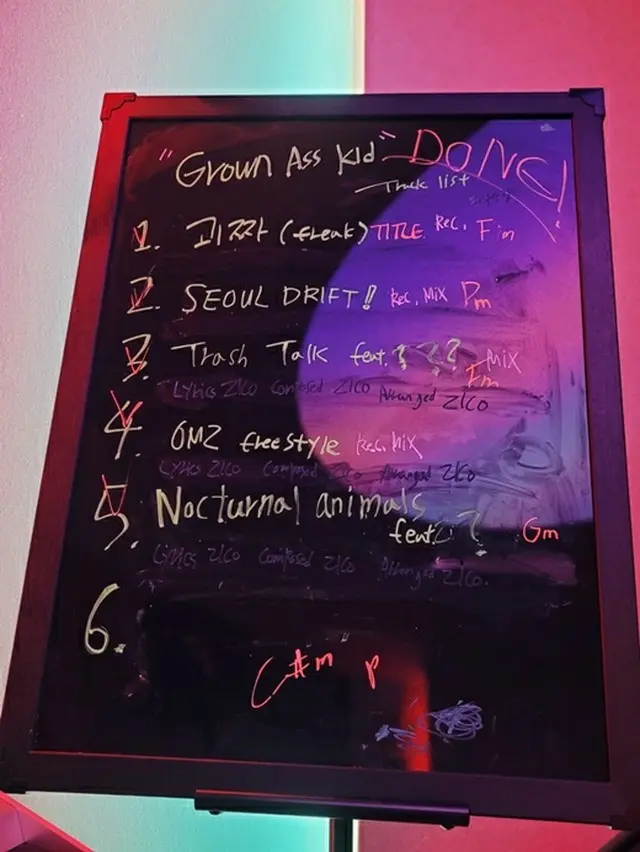 "Grown Ass Kid" DONE!
Track list
1. 괴짜 (freak) TITLE Rec. Fm
2. SEOUL DRIFT! Rec, Mix Dm
3. Trash Talk feat. ? ? ? Mix
Fm
Lyrics ZICO Composed ZICO Arranged ZICO
4. OMZ freestyle Rec. Mix
Lyrics ZICO Composed ZICO Arranged ZICO
5. Nocturnal animals
feat. ? Gm
Lyrics ZICO Composed ZICO Arranged ZICO.
6.
C#m